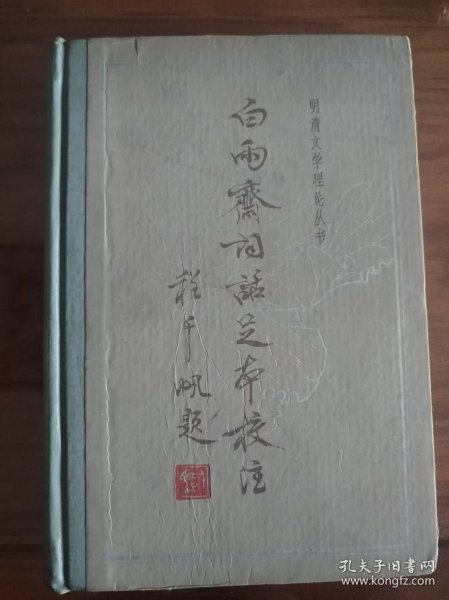 明清文学理论丛书
白雨齋词話足本校注
程千帆题
孔夫子旧书网
www.kongfz.com